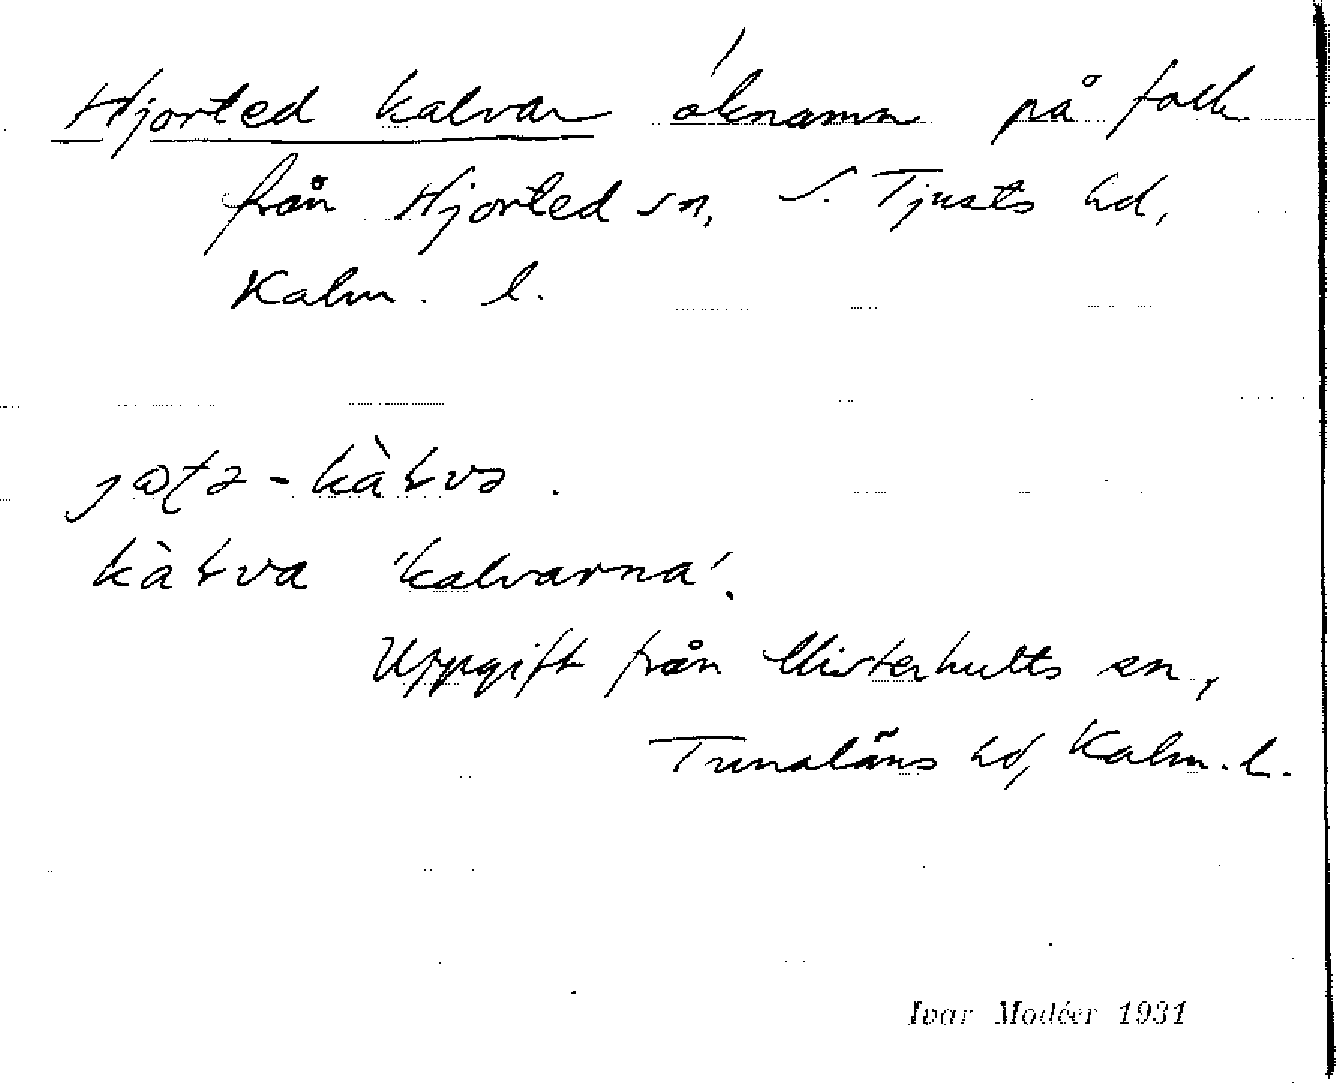 Hjorted kalvar öknamn på folk
från Hjorted sn, S. Tjusts hd,
Kalm. l.
kàɫva 'kalvarna'.
Uppgift från Misterhults sn,
Tunaläns hd, Kalm. l.
Ivar Modéer 1931